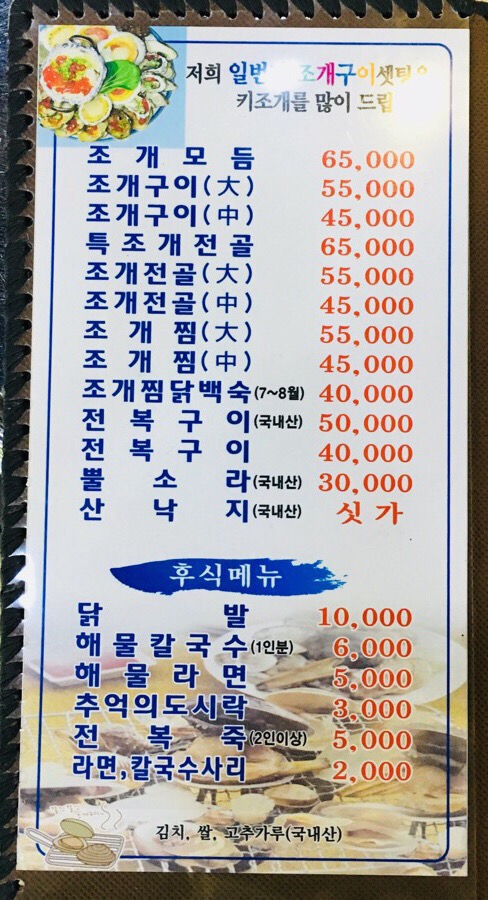 저희 일번 조개구이셋팅
키조개를 많이 드립
조개모듬 65,000
조개구이(大) 55,000
조개구이(中) 45,000
특조개전골 65,000
조개전골(大) 55,000
조개전골(中) 45,000
조개찜(大) 55,000
조개찜(中) 45,000
조개찜닭백숙(7~8월) 40,000
전복구이(국내산) 50,000
전복구이 40,000
뿔소라(국내산) 30,000
산낙지(국내산) 싯가
후식메뉴
닭발 10,000
해물칼국수(1인분) 6,000
해물라면 5,000
추억의도시락 3,000
전복죽(2인이상) 5,000
라면,칼국수사리 2,000
김치, 쌀, 고추가루(국내산)